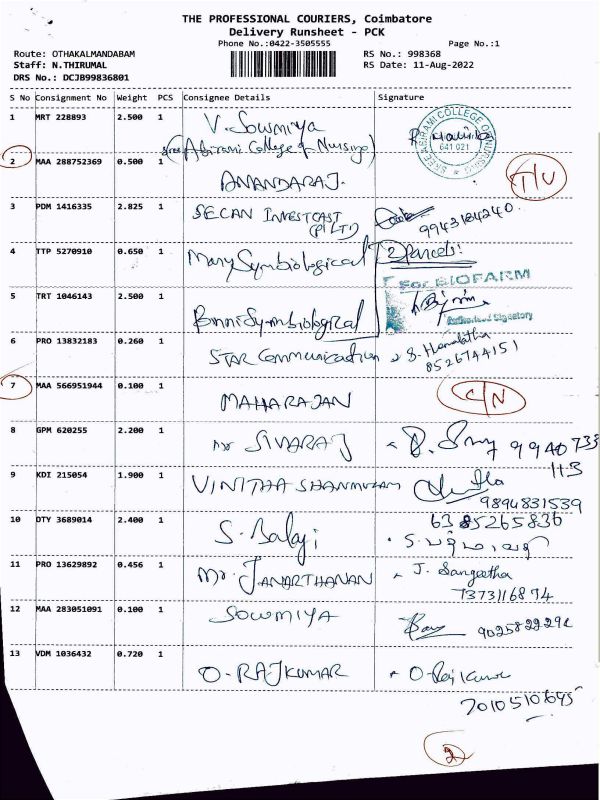 THE PROFESSIONAL COURIERS, Coimbatore
Delivery Runsheet - PCK
Phone No.:0422-3505555 Page No.:1
Route: OTHAKALMANDABAM RS No.: 998368
Staff: N.THIRUMAL RS Date: 11-Aug-2022
DRS No.: DCJB99836801
S No Consignment No Weight PCS Consignee Details Signature
1 MRT 228893 2.500 1 V. Sowmiya
(Sree Abirami College of Nursing)
SREE ABIRAMI COLLEGE OF NURSING
641 021
2 MAA 288752369 0.500 1 ANANDARAJ. I/U
3 PDM 1416335 2.825 1 SECAN INVESTCAST
(P) LTD 9943184240.
4 TTP 5270910 0.650 1 Mary Symbiological 2 Parcels!
For BIOFARM
5 TRT 1046143 2.500 1 Binni Symbiological
Authorised Signatory
6 PRO 13832183 0.260 1 STAR Communication S. Hemalatha
8526744151
7 MAA 566951944 0.100 1 MAHARAJAN C/N
8 GPM 620255 2.200 1 Mr SIVARAJ 9940733
113
9 KDI 215054 1.900 1 VINITHA SHANMUGAM
9894831539
10 DTY 3689014 2.400 1 S. Balaji 6385265836
11 PRO 13629892 0.456 1 Mr. JANARTHANAN J. Sangeetha
7373116874
12 MAA 283051091 0.100 1 SOWMIYA
13 VDM 1036432 0.720 1 O. RAJKUMAR O. Rajkumar
7010510695
2